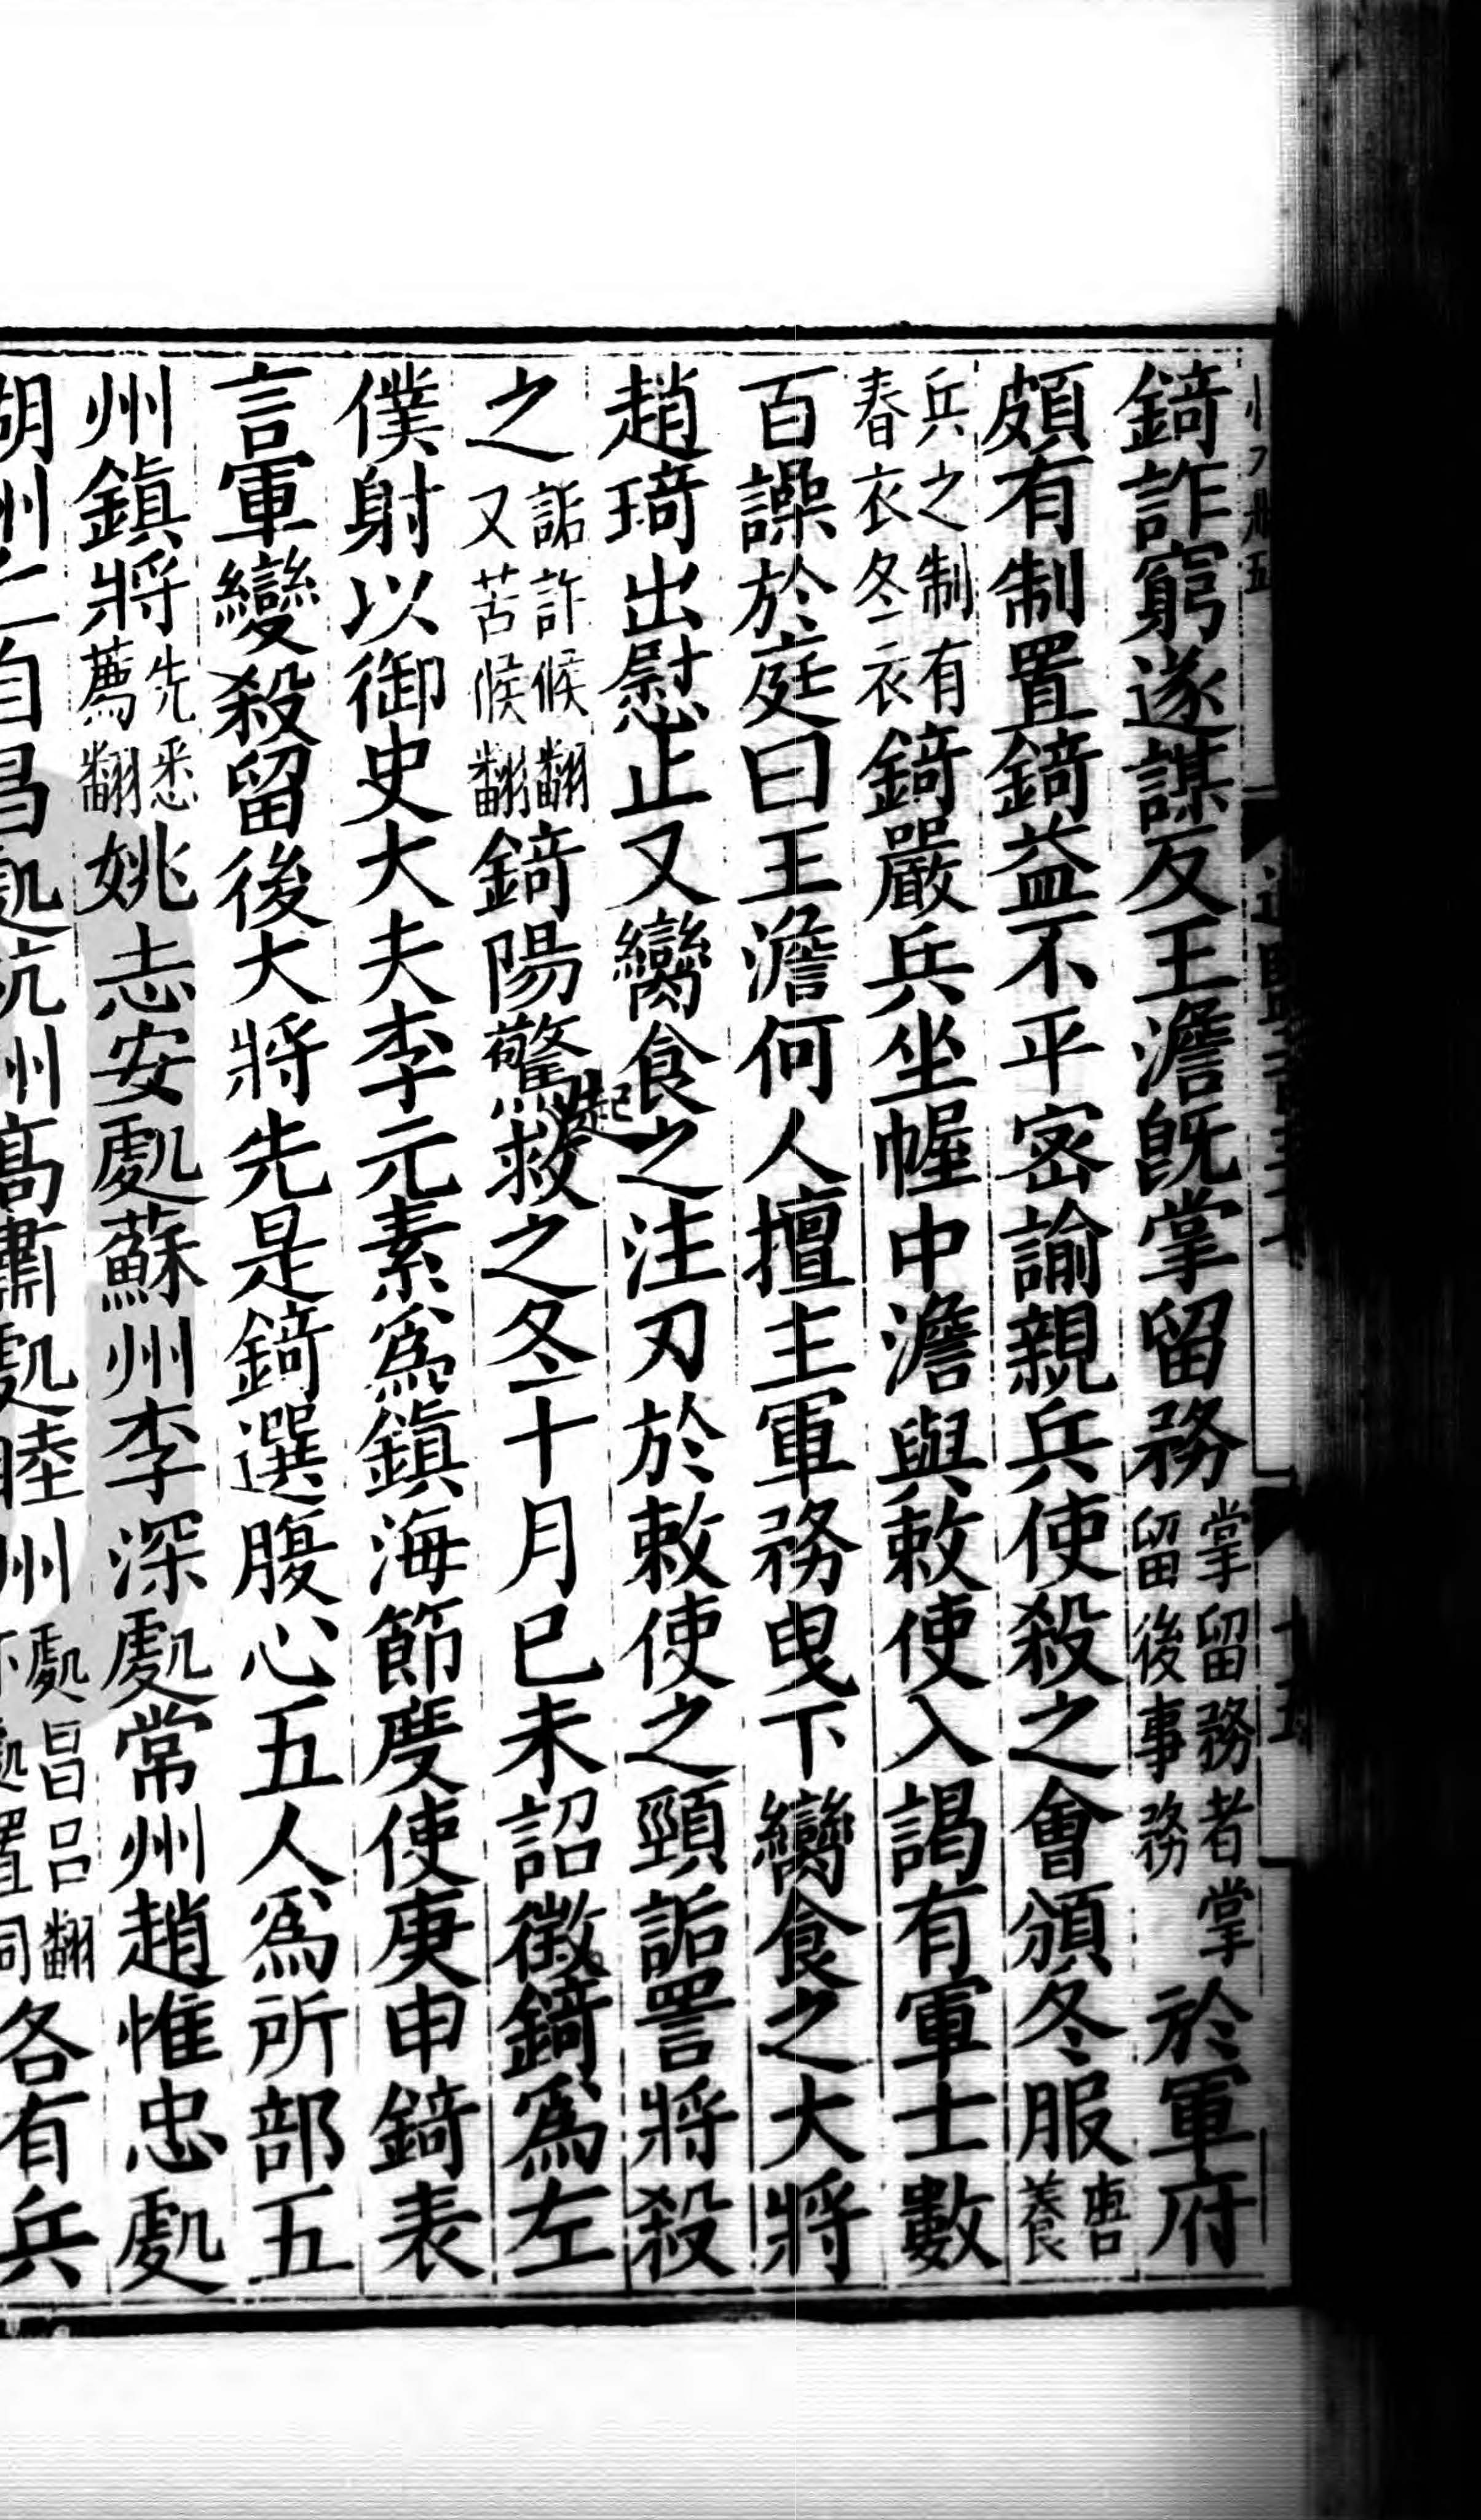 錡詐窮遂謀反王澹旣掌留務掌留務者掌留後事務於軍府
頗有制置錡益不平密諭親兵使殺之會頒冬服唐養
兵之制有春衣冬衣錡嚴兵坐幄中澹與敕使入謁有軍士數
百譟於庭曰王澹何人擅主軍務曳下臠食之大將
趙琦出慰止又臠食之注刃於敕使之頸詬詈將殺
之詬許候翻又苦候翻錡陽驚起救之冬十月已未詔徵錡爲左
僕射以御史大夫李元素爲鎭海節度使庚申錡表
言軍變殺留後大將先是錡選腹心五人爲所部五
州鎭將先悉薦翻姚志安處蘇州李深處常州趙惟忠處
湖州丘自昌處杭州高肅處睦州處昌呂翻下處置同各有兵